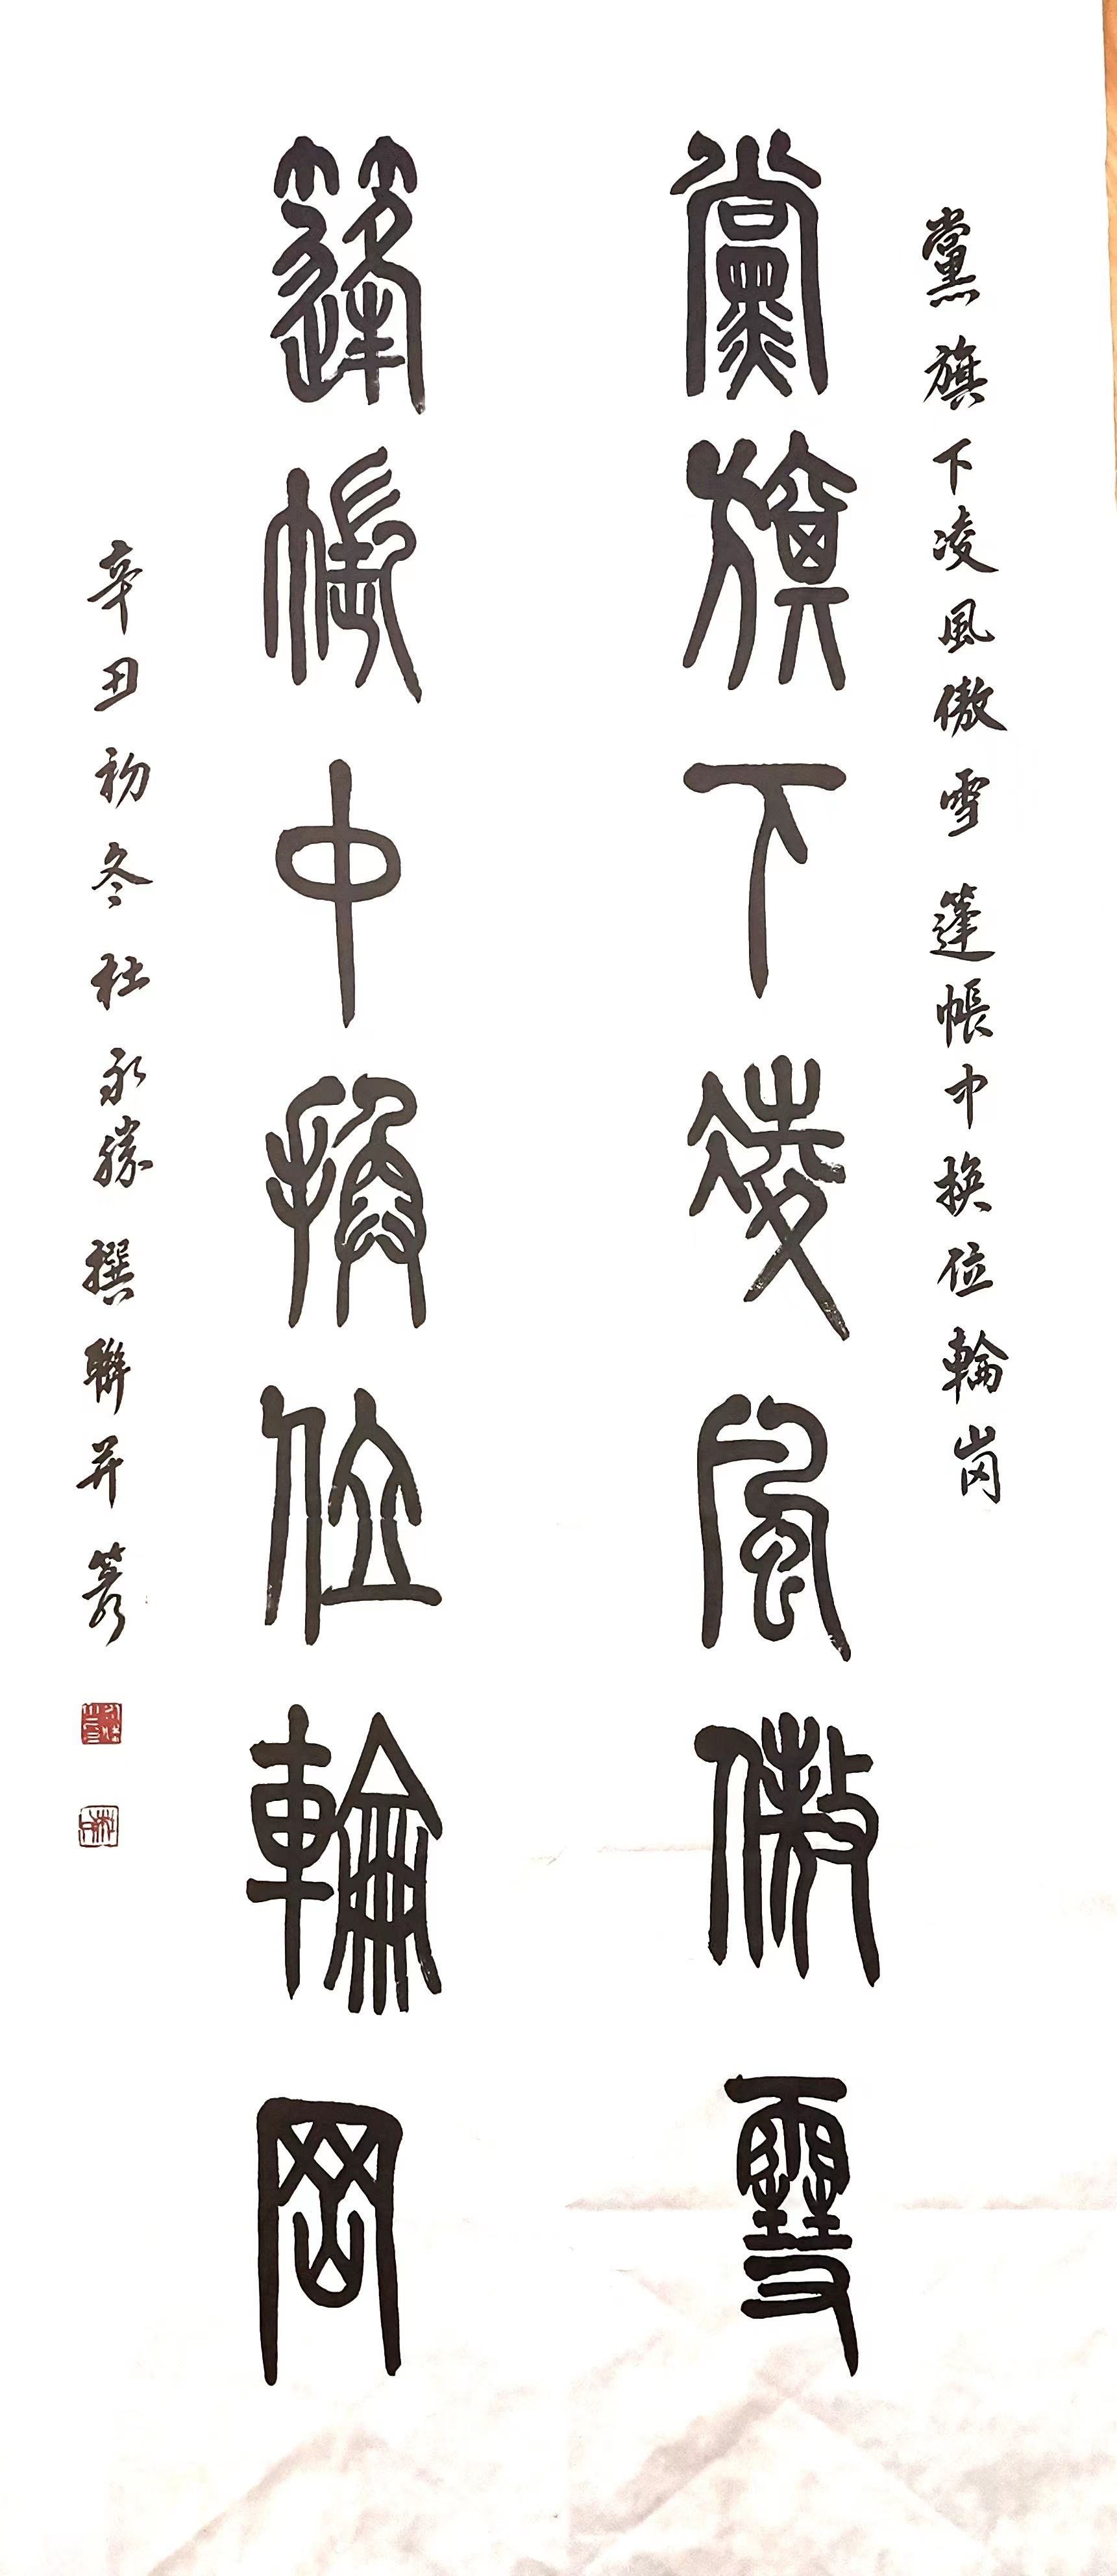 黨旗下凌風傲雪 篷帳中換位輪崗
黨旗下凌風傲雪
篷帳中換位輪岡
辛丑初冬杜永勝撰聯并篆